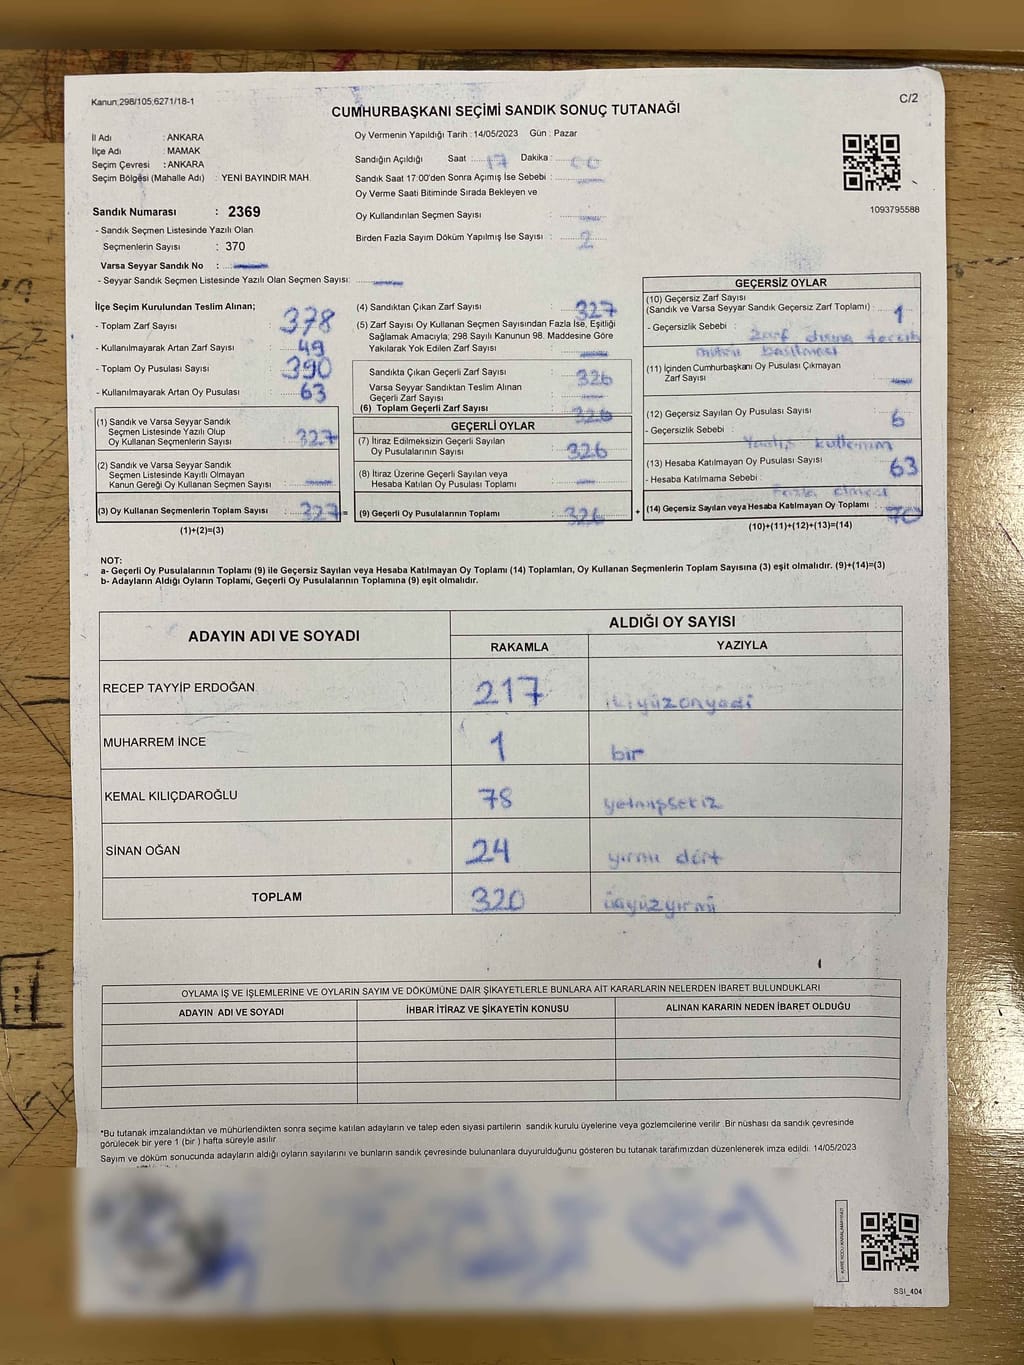 Kanun;298/105;6271/18-1
C/2
CUMHURBAŞKANI SEÇİMİ SANDIK SONUÇ TUTANAĞI
İl Adı : ANKARA
İlçe Adı : MAMAK
Seçim Çevresi : ANKARA
Seçim Bölgesi (Mahalle Adı) : YENİ BAYINDIR MAH.
Sandık Numarası : 2369
- Sandık Seçmen Listesinde Yazılı Olan
Seçmenlerin Sayısı : 370
Varsa Seyyar Sandık No :
- Seyyar Sandık Seçmen Listesinde Yazılı Olan Seçmen Sayısı:
Oy Vermenin Yapıldığı Tarih : 14/05/2023 Gün : Pazar
Sandığın Açıldığı Saat : 17 Dakika : 00
Sandık Saat 17:00'den Sonra Açımış İse Sebebi :
Oy Verme Saati Bitiminde Sırada Bekleyen ve
Oy Kullandırılan Seçmen Sayısı :
Birden Fazla Sayım Döküm Yapılmış İse Sayısı : 2
1093795588
İlçe Seçim Kurulundan Teslim Alınan;
- Toplam Zarf Sayısı : 378
- Kullanılmayarak Artan Zarf Sayısı : 49
- Toplam Oy Pusulası Sayısı : 390
- Kullanılmayarak Artan Oy Pusulası : 63
(1) Sandık ve Varsa Seyyar Sandık
Seçmen Listesinde Yazılı Olup
Oy Kullanan Seçmenlerin Sayısı : 327
(2) Sandık ve Varsa Seyyar Sandık
Seçmen Listesinde Kayıtlı Olmayan
Kanun Gereği Oy Kullanan Seçmen Sayısı :
(3) Oy Kullanan Seçmenlerin Toplam Sayısı : 327 =
(1)+(2)=(3)
(4) Sandıktan Çıkan Zarf Sayısı : 327
(5) Zarf Sayısı Oy Kullanan Seçmen Sayısından Fazla İse, Eşitliği
Sağlamak Amacıyla; 298 Sayılı Kanunun 98. Maddesine Göre
Yakılarak Yok Edilen Zarf Sayısı :
Sandıkta Çıkan Geçerli Zarf Sayısı : 326
Varsa Seyyar Sandıktan Teslim Alınan
Geçerli Zarf Sayısı :
(6) Toplam Geçerli Zarf Sayısı : 326
GEÇERLİ OYLAR
(7) İtiraz Edilmeksizin Geçerli Sayılan
Oy Pusulalarının Sayısı : 326
(8) İtiraz Üzerine Geçerli Sayılan veya
Hesaba Katılan Oy Pusulası Toplamı :
(9) Geçerli Oy Pusulalarının Toplamı : 326 +
GEÇERSİZ OYLAR
(10) Geçersiz Zarf Sayısı
(Sandık ve Varsa Seyyar Sandık Geçersiz Zarf Toplamı) : 1
- Geçersizlik Sebebi : Zarf dışına tercih
mührü basılması
(11) İçinden Cumhurbaşkanı Oy Pusulası Çıkmayan
Zarf Sayısı :
(12) Geçersiz Sayılan Oy Pusulası Sayısı : 6
- Geçersizlik Sebebi : Yanlış kullanım
(13) Hesaba Katılmayan Oy Pusulası Sayısı : 63
- Hesaba Katılmama Sebebi : Fazla olması
(14) Geçersiz Sayılan veya Hesaba Katılmayan Oy Toplamı : 70
(10)+(11)+(12)+(13)=(14)
NOT:
a- Geçerli Oy Pusulalarının Toplamı (9) ile Geçersiz Sayılan veya Hesaba Katılmayan Oy Toplamı (14) Toplamları, Oy Kullanan Seçmenlerin Toplam Sayısına (3) eşit olmalıdır. (9)+(14)=(3)
b- Adayların Aldığı Oyların Toplamı, Geçerli Oy Pusulalarının Toplamına (9) eşit olmalıdır.
ADAYIN ADI VE SOYADI ALDIĞI OY SAYISI
RAKAMLA YAZIYLA
RECEP TAYYİP ERDOĞAN 217 ikiyüzonyedi
MUHARREM İNCE 1 bir
KEMAL KILIÇDAROĞLU 78 yetmişsekiz
SİNAN OĞAN 24 yirmi dört
TOPLAM 320 üçyüzyirmi
OYLAMA İŞ VE İŞLEMLERİNE VE OYLARIN SAYIM VE DÖKÜMÜNE DAİR ŞİKAYETLERLE BUNLARA AİT KARARLARIN NELERDEN İBARET BULUNDUKLARI
ADAYIN ADI VE SOYADI İHBAR İTİRAZ VE ŞİKAYETİN KONUSU ALINAN KARARIN NEDEN İBARET OLDUĞU
*Bu tutanak imzalandıktan ve mühürlendikten sonra seçime katılan adayların ve talep eden siyasi partilerin sandık kurulu üyelerine veya gözlemcilerine verilir. Bir nüshası da sandık çevresinde
görülecek bir yere 1 (bir ) hafta süreyle asılır.
Sayım ve döküm sonucunda adayların aldığı oyların sayılarını ve bunların sandık çevresinde bulunanlara duyurulduğunu gösteren bu tutanak tarafımızdan düzenlenerek imza edildi. 14/05/2023
SSI_404